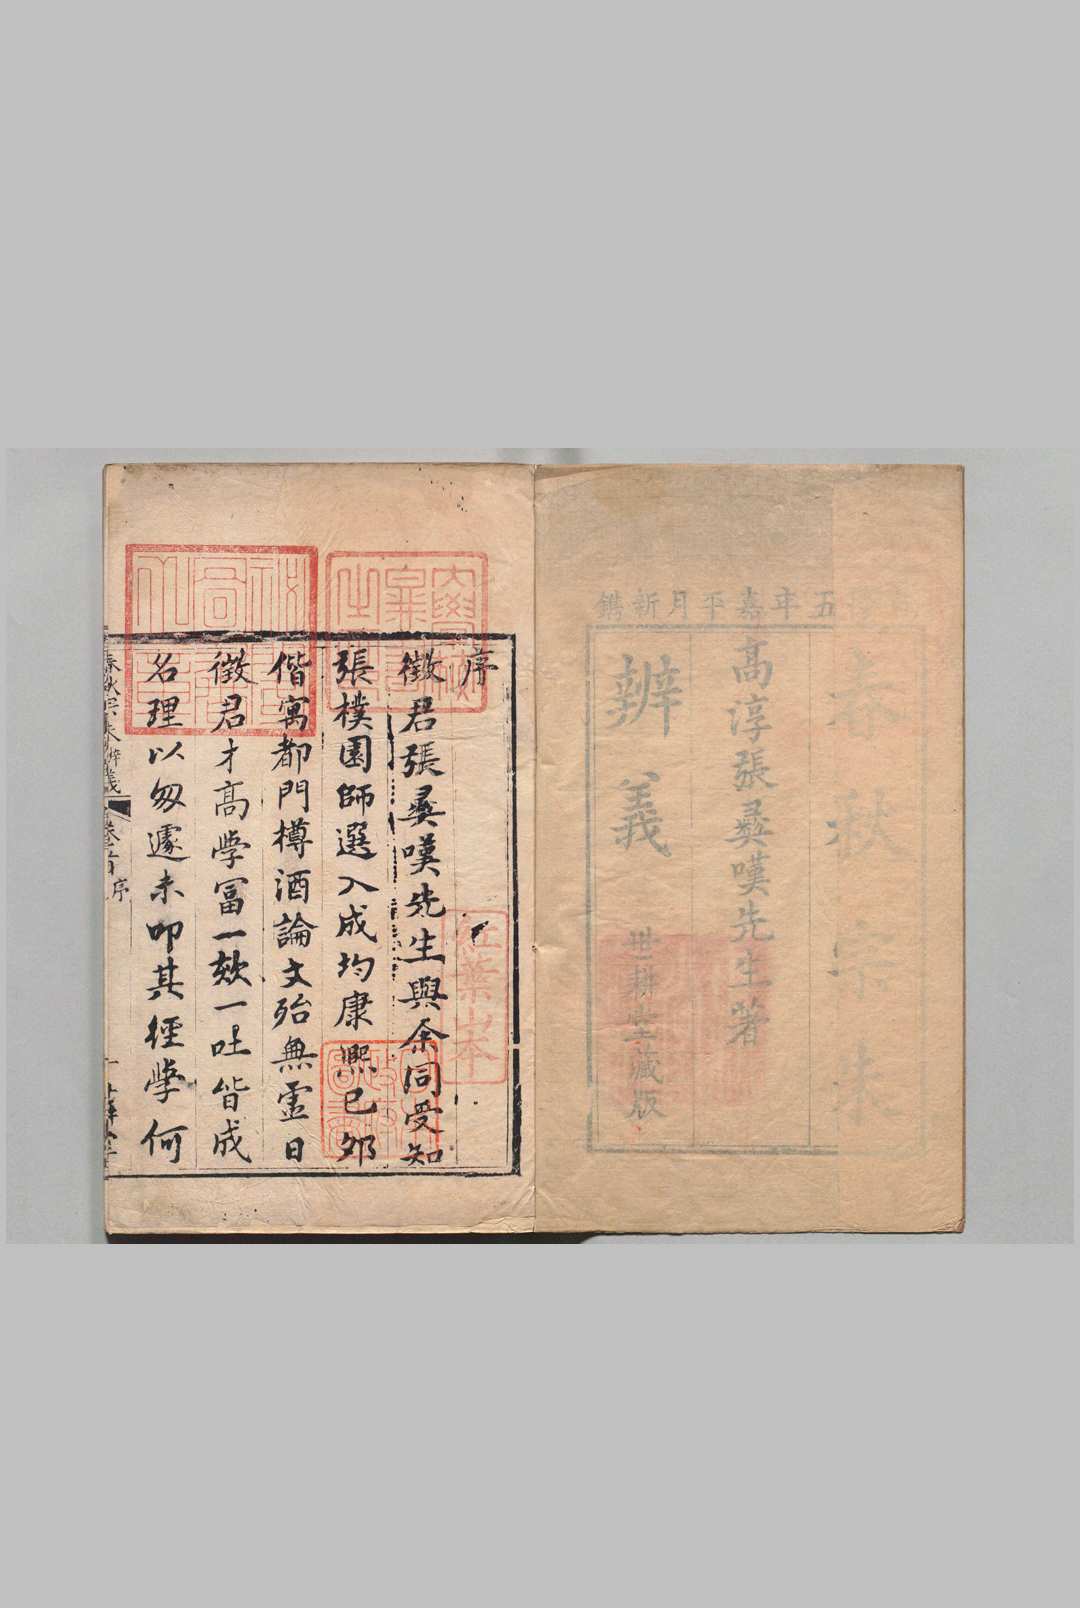 五年嘉平月新鐫
春秋宗朱
高淳張彝嘆先生著
辨義
世耕堂藏版
序
徵君張彝嘆先生與余同受知
張樸園師選入成均康熙已夘
偕寓都門樽酒論文殆無虛日
徵君才高学冨一欬一吐皆成
名理以匆遽未叩其徑學何
春秋宗朱辨義
卷首
序
一